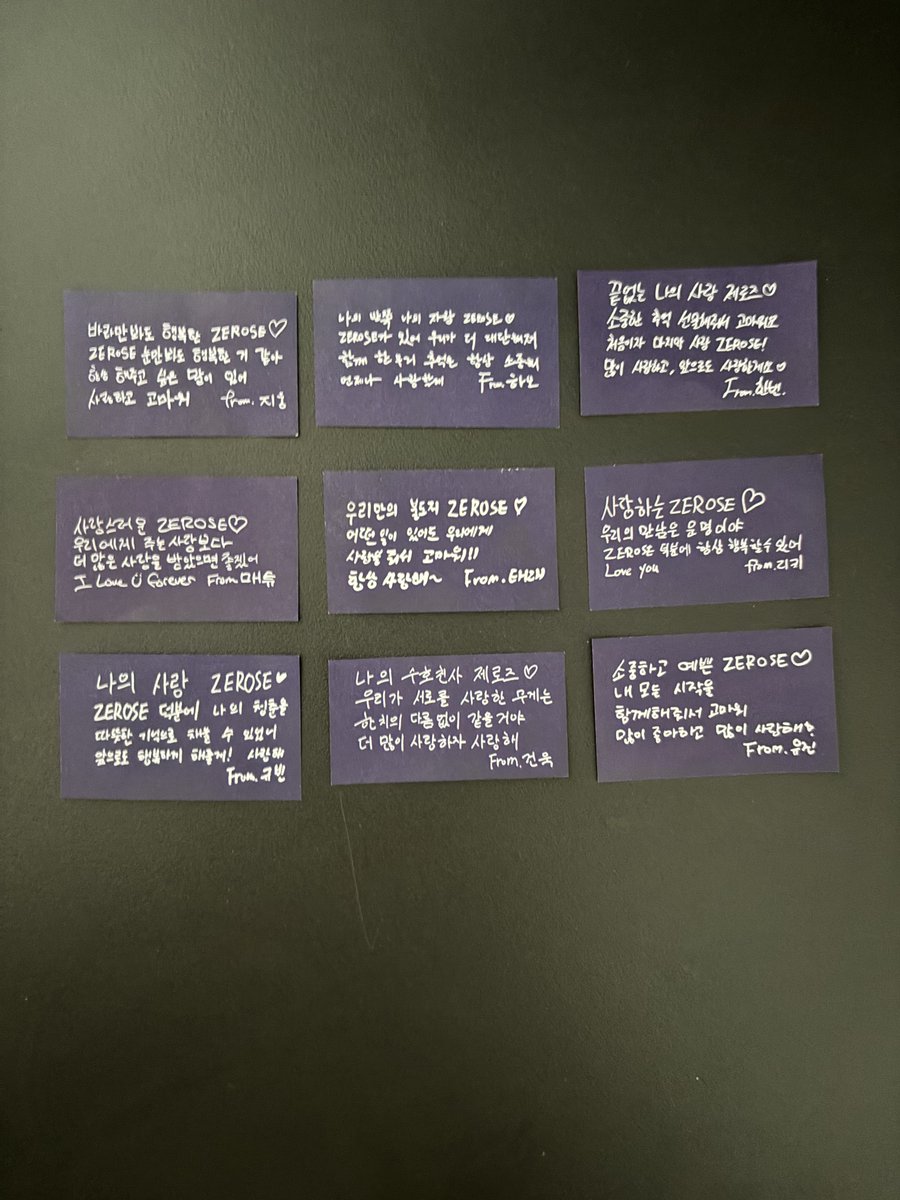 바라만 봐도 행복한 ZEROSE♡
ZEROSE 눈만 봐도 행복한 거 같아
항상 해주고 싶은 말이 있어
사랑하고 고마워 from. 지웅
나의 행복 나의 자랑 ZEROSE♡
ZEROSE가 있어 우리가 더 대단해져
함께 한 우리 추억은 항상 소중해
언제나 사랑해 From. 하오
끝없는 나의 사랑 제로즈♡
소중한 추억 선물해줘서 고마워요
처음이자 마지막 사랑 ZEROSE!
많이 사랑하고, 앞으로도 사랑할게요♡
From. 한빈.
사랑스러운 ZEROSE♡
우리에게 주는 사랑보다
더 많은 사랑을 받았으면 좋겠어
I Love U forever From. 매튜
우리만의 복도지 ZEROSE♡
어떤 일이 있어도 우리에게
사랑을 줘서 고마워!!
항상 사랑해~ From. 태래
사랑하는 ZEROSE♡
우리의 만남은 운명이야
ZEROSE 덕분에 항상 행복할 수 있어
Love you from. 리키
나의 사랑 ZEROSE♥
ZEROSE 덕분에 나의 청춘을
따뜻한 기억으로 채울 수 있었어
앞으로도 행복하게 해줄게! 사랑해
From. 규빈
나의 수호천사 제로즈♡
우리가 서로를 사랑한 무게는
한 치의 다름없이 같을거야
더 많이 사랑하자 사랑해
From. 건욱
소중하고 예쁜 ZEROSE♡
내 모든 시작을
함께해줘서 고마워
많이 좋아하고 많이 사랑해
From. 유진